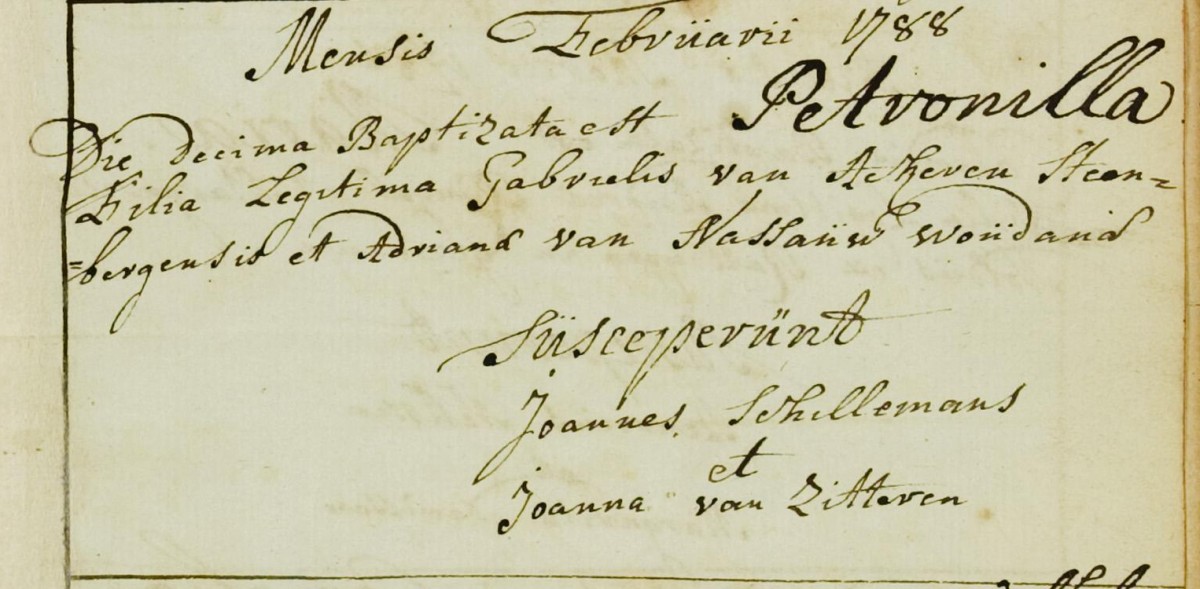 Mensis Februarii 1788
Die decima Baptizata est Petronilla
Filia Legitima Gabrielis van Ackeren Steen=
=bergensis et Adriana van Nassauw Woudana
Susceperunt
Joannes Schillemans
et
Joanna van Zitteren